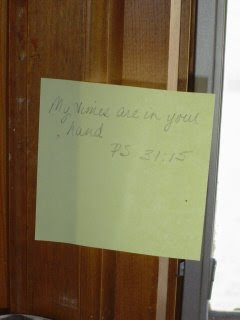 My times are in your
hand
PS 31:15